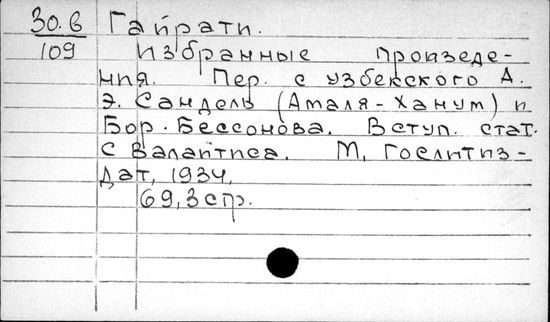 30.6 Гайрати.
109 Избранные произеде-
ния. Пер. с узбекского А.
Э. Сандель (Амаля-Ханум) и
Бор. Бессонова. Вступ. стат.
С Валайтиса. М, Гослитиз-
дат, 1934,
69,3 стр.